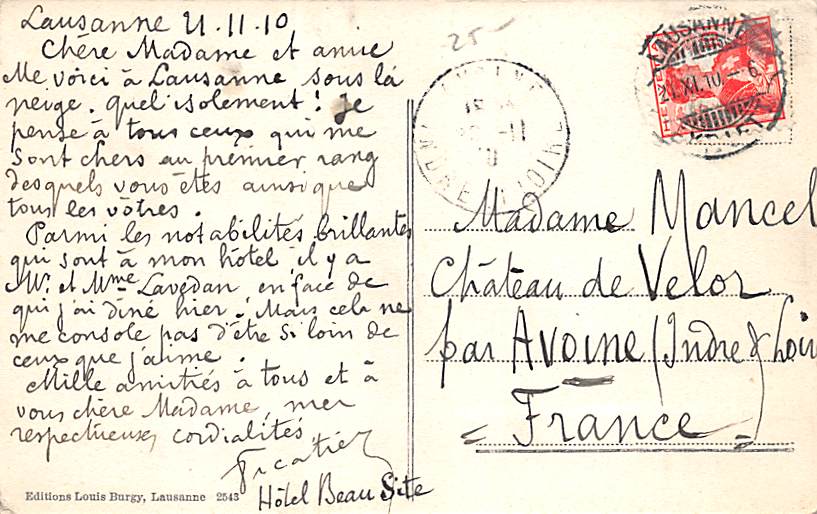 Lausanne 21.11.10
Chère Madame et amie
Me voici à Lausanne sous la
neige. quel isolement! Je
pense à tous ceux qui me
sont chers au premier rang
desquels vous êtes ainsi que
tous les vôtres.
Parmi les notabilités brillantes
qui sont à mon hôtel, il y a
Mr. et Mme Lavedan en face de
qui j'ai diné hier. Mais cela ne
me console pas d'être si loin de
ceux que j'aime.
Mille amitiés à tous et à
vous chère Madame, mes
respectueuses cordialités
Hôtel Beau Site
Editions Louis Burgy, Lausanne 2543
25-
AVOINE
INDRE & LOIRE
LAUSANNE
21.XI.10.-6
HELVETIA
Madame Mancel
Château de Velor
par Avoine (Indre & Loir
France